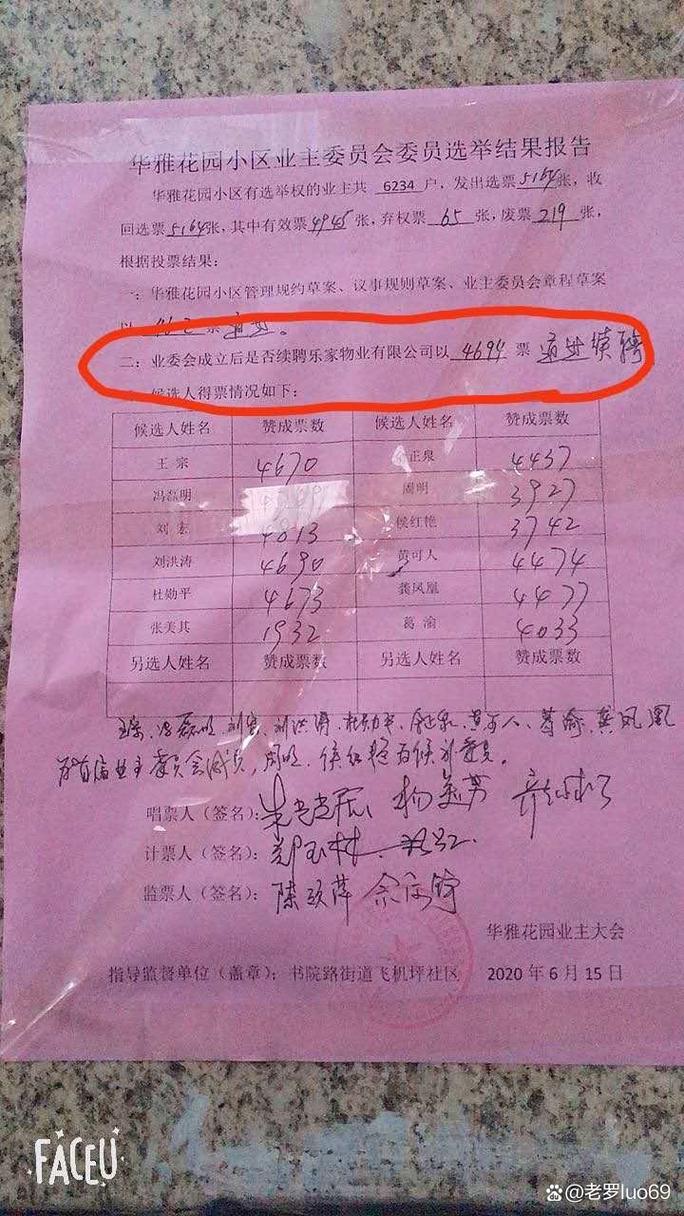 华雅花园小区业主委员会委员选举结果报告
华雅花园小区有选举权的业主共 6234 户，发出选票5164张，收
回选票5164张，其中有效票4945张，弃权票 65 张，废票 219 张，
根据投票结果：
一：华雅花园小区管理规约草案、议事规则草案、业主委员会章程草案
票 通过。
二：业委会成立后是否续聘乐家物业有限公司以 4694 票 通过续聘
候选人得票情况如下：
候选人姓名 赞成票数 候选人姓名 赞成票数
王 宗 4670 正泉 4437
冯磊明 周明 3927
刘 宏 4813 侯红艳 3742
刘洪涛 4690 黄可人 4474
杜勋平 4673 龚凤凰 4477
张美其 1932 葛 渝 4033
另选人姓名 赞成票数 另选人姓名 赞成票数
王宗、冯磊明、刘宏、刘洪涛、杜勋平、正泉、黄可人、葛渝、龚凤凰
为首届业主委员会委员，周明、侯红艳为候补委员。
唱票人（签名）：
计票人（签名）：
监票人（签名）：
华雅花园业主大会
指导监督单位（盖章）：书院路街道飞机坪社区 2020 年 6 月 15 日
FACEU
@老罗luo69